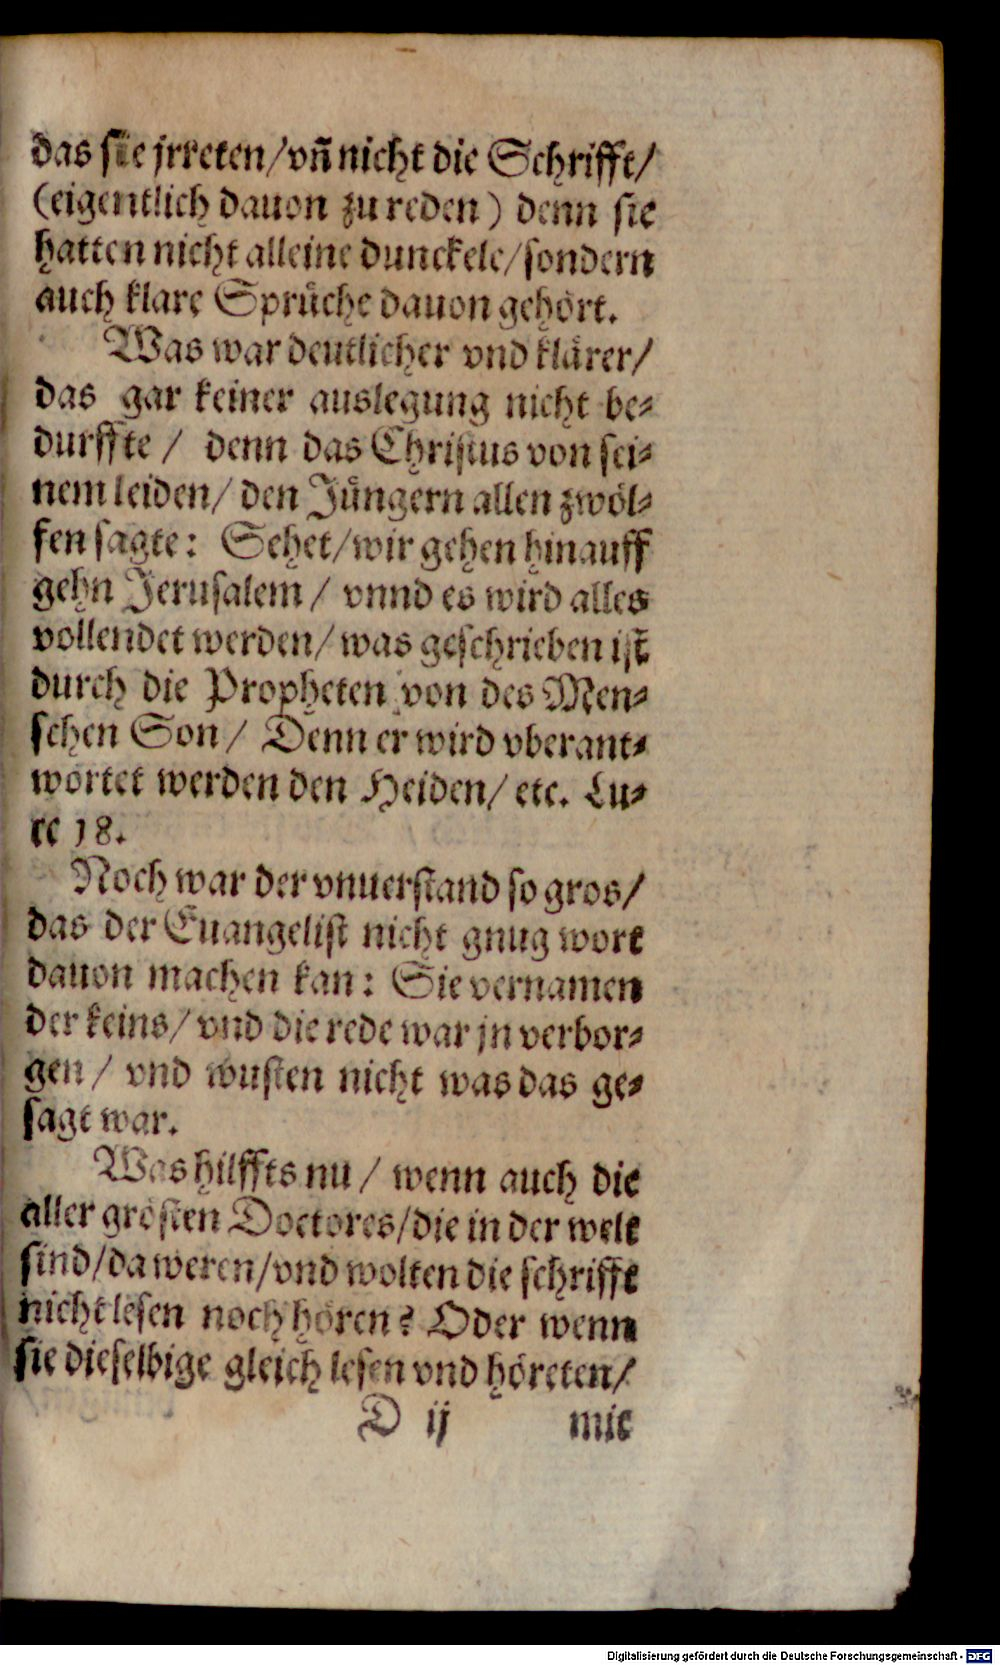 das sie jrreten/vñ nicht die Schrifft/
(eigentlich dauon zu reden) denn sie
hatten nicht alleine dunckele/sondern
auch klare Sprüche dauon gehört.
Was war deutlicher vnd klärer/
das gar keiner auslegung nicht be⸗
durffte / denn das Christus von sei⸗
nem leiden/ den Jüngern allen zwöl⸗
fen sagte: Sehet/wir gehen hinauff
gehn Jerusalem / vnnd es wird alles
vollendet werden/ was geschrieben ist
durch die Propheten von des Men⸗
schen Son/ Denn er wird vberant⸗
wortet werden den Heiden/ etc. Lu⸗
ce 18.
Noch war der vnuerstand so gros/
das der Euangelist nicht gnug wort
dauon machen kan: Sie vernamen
der keins/ vnd die rede war jn verbor⸗
gen / vnd wusten nicht was das ge⸗
sagt war.
Was hilffts nu / wenn auch die
aller grösten Doctores/die in der welt
sind/da weren/vnd wolten die schrifft
nicht lesen noch hören? Oder wenn
sie dieselbige gleich lesen vnd höreten/
D ij mit
Digitalisierung gefördert durch die Deutsche Forschungsgemeinschaft - DFG